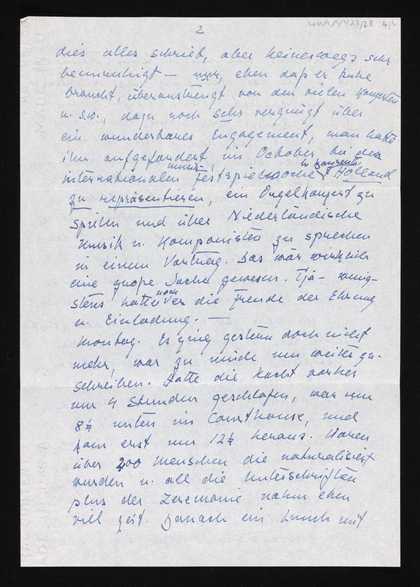 2
dies alles schrieb, aber keineswegs sehr
beunruhigt — nur, eben daß er Ruhe
braucht, überanstrengt von den vielen Konzerten
u. s.w., dazu noch sehr vergnügt über
ein wunderbares Engagement, man hatte
ihn aufgefordert, im October, bei der
internationalen Festspielwoche Holland
zu repräsentieren, ein Orgelkonzert zu
spielen und über Niederländische
Musik u. Komponisten zu sprechen
in einem Vortrag. Das wär
eine große Sache gewesen. Tja — wenig-
stens hatte er noch die Freude der Ehrung
u. Einladung. —
Montag. Es ging gestern doch nicht
mehr, war zu müde um weiter zu
schreiben. Hatte die Nacht vorher
nur 4 Stunden geschlafen, war um
8½ unten im Courthouse, und
kam erst um 12½ heraus. Waren
über 200 Menschen die naturalisiert
wurden u. all die Unterschriften
plus der Zeremonie nahm eben
viel Zeit. Danach ein Lunch mit